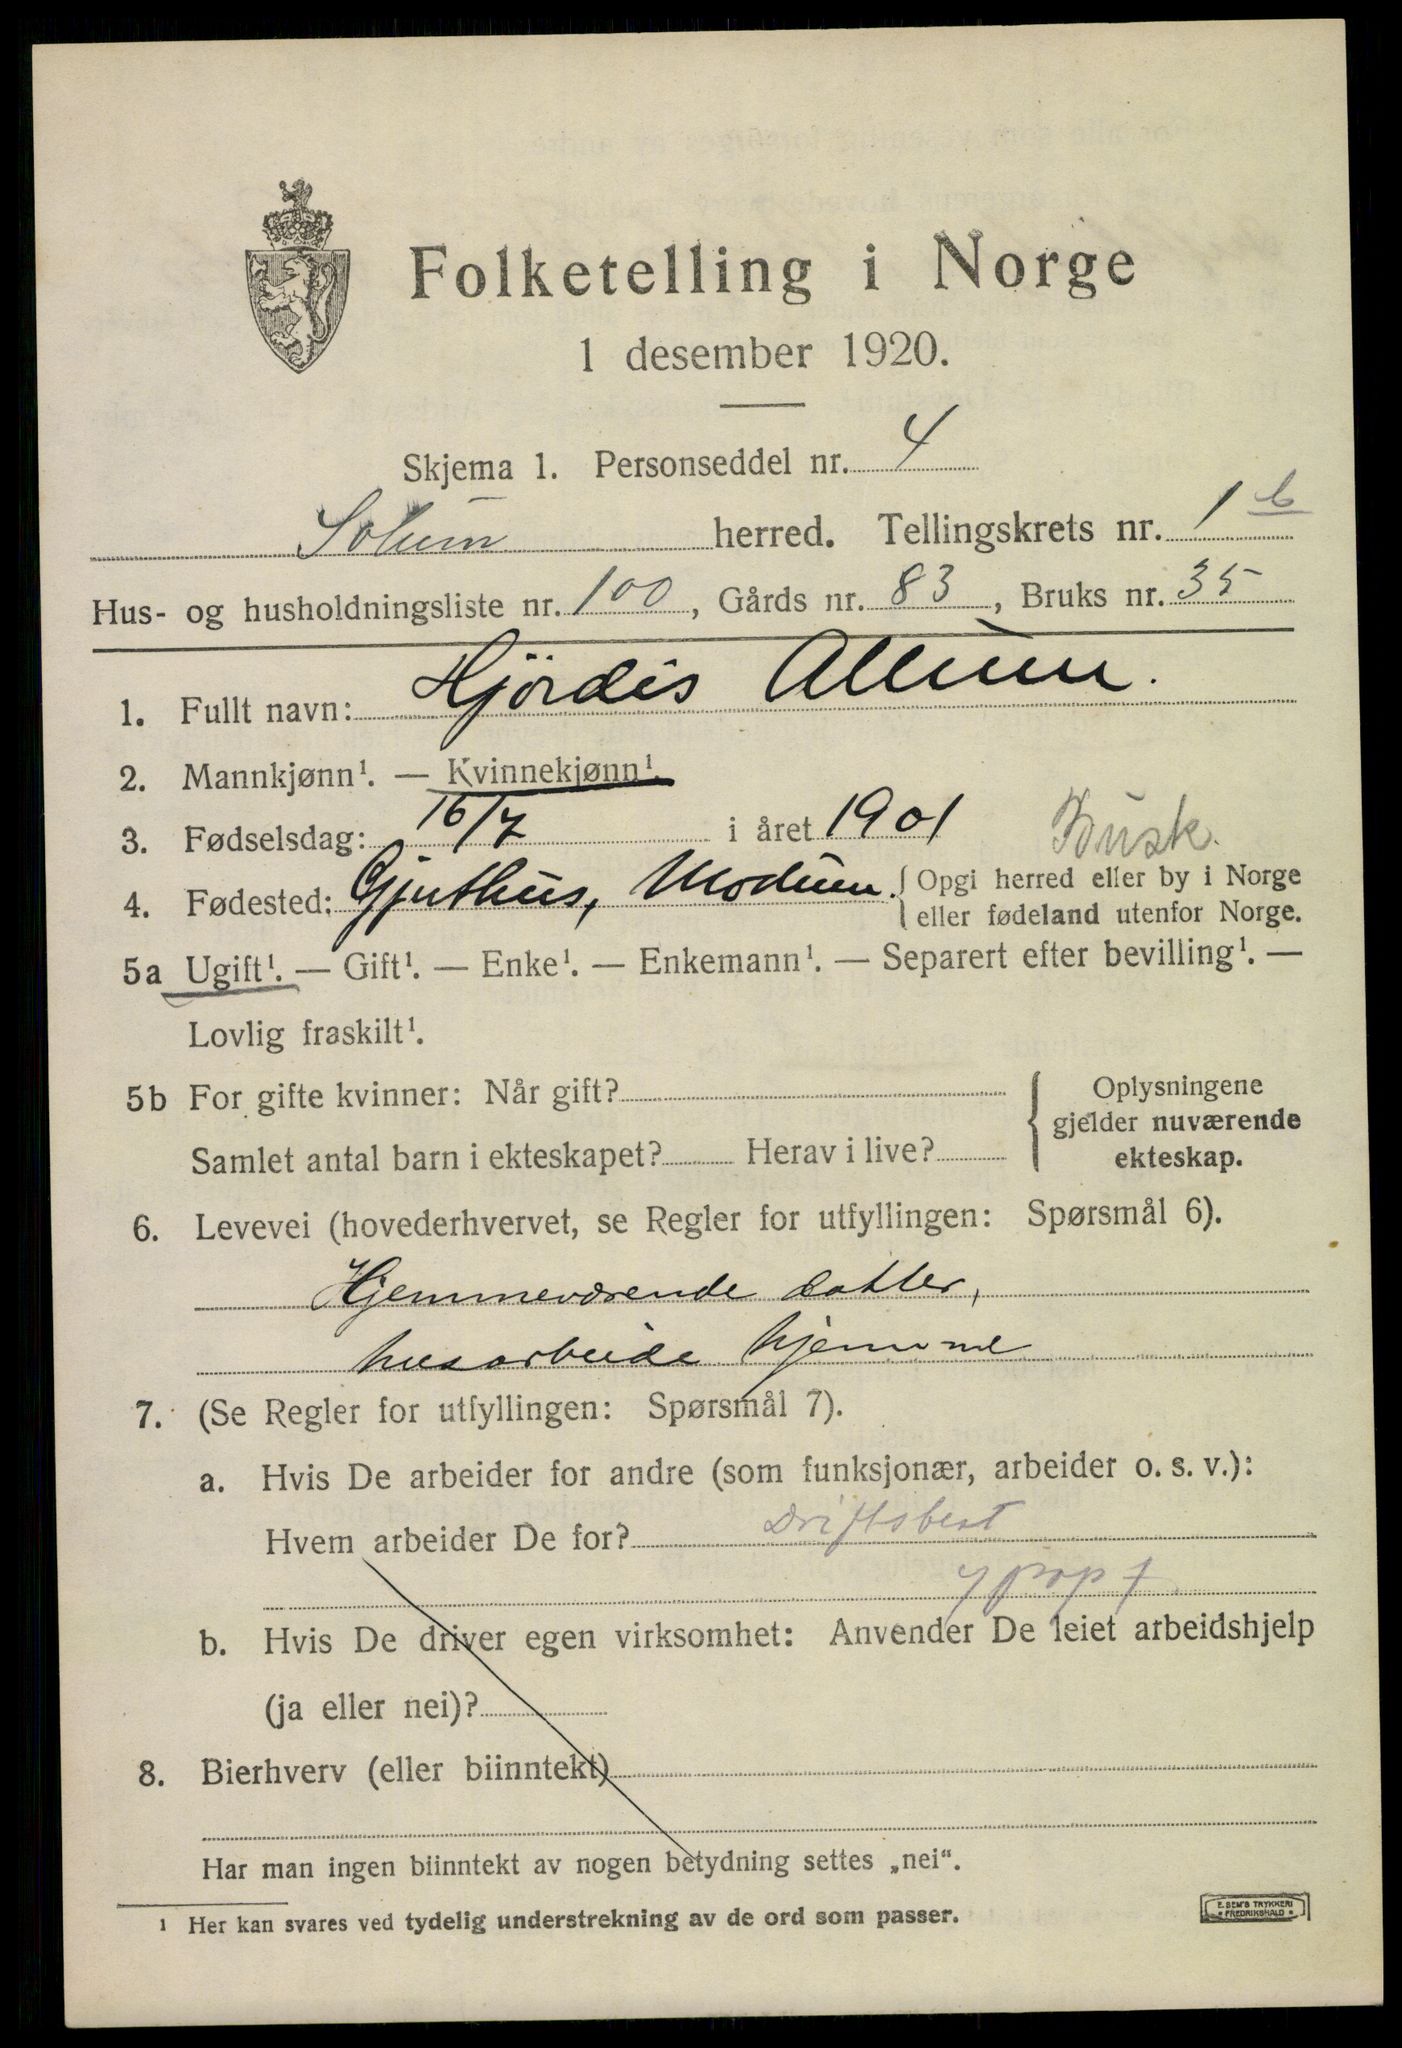 Folketelling i Norge
1 desember 1920.
Skjema 1. Personseddel nr. 4
Solum herred. Tellingskrets nr. 1 b
Hus- og husholdningsliste nr. 100, Gårds nr. 83, Bruks nr. 35
1. Fullt navn: Hjördis Allum.
2. Mannkjønn¹. — Kvinnekjønn¹.
3. Fødselsdag: 16/7 i året 1901 Busk.
4. Fødested: Gjuthus, Modum. { Opgi herred eller by i Norge
eller fødeland utenfor Norge.
5a Ugift¹. — Gift¹. — Enke¹. — Enkemann¹. — Separert efter bevilling¹. —
Lovlig fraskilt¹.
5b For gifte kvinner: Når gift? { Oplysningene
gjelder nuværende
Samlet antal barn i ekteskapet? Herav i live? ekteskap.
6. Levevei (hovederhvervet, se Regler for utfyllingen: Spørsmål 6).
Hjemmeværende datter,
husarbeide hjemme
7. (Se Regler for utfyllingen: Spørsmål 7).
a. Hvis De arbeider for andre (som funksjonær, arbeider o. s. v.):
Hvem arbeider De for? Driftsbest
b. Hvis De driver egen virksomhet: Anvender De leiet arbeidshjelp
(ja eller nei)?
8. Bierhverv (eller biinntekt)
Har man ingen biinntekt av nogen betydning settes „nei“.
¹ Her kan svares ved tydelig understrekning av de ord som passer.
E. SEM'S TRYKKERI
FREDRIKSHALD